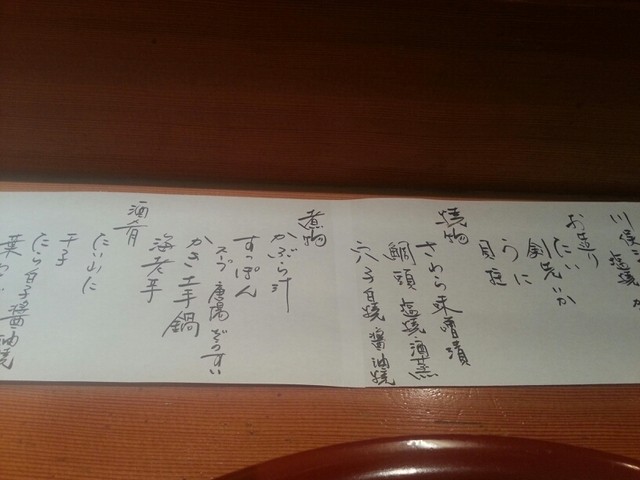 お造り
たい
剣先いか
うに
焼物
さわら味噌漬
鯛頭 塩焼 酒無
穴子白焼 醤油焼
煮物
かぶら汁
すっぽん
スープ 唐揚 ぞうすい
かき土手鍋
海老芋
酒肴
干子
たら白子醤油焼